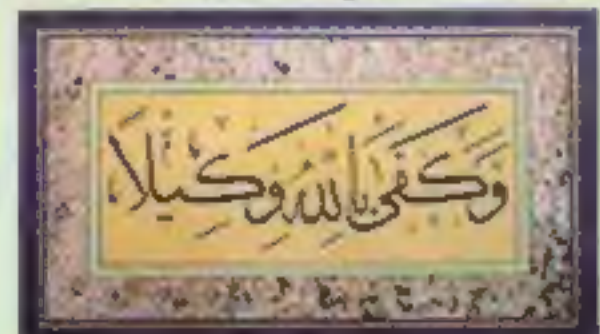 وَكَفَىٰ بِاللّٰهِ وَكِيلًا